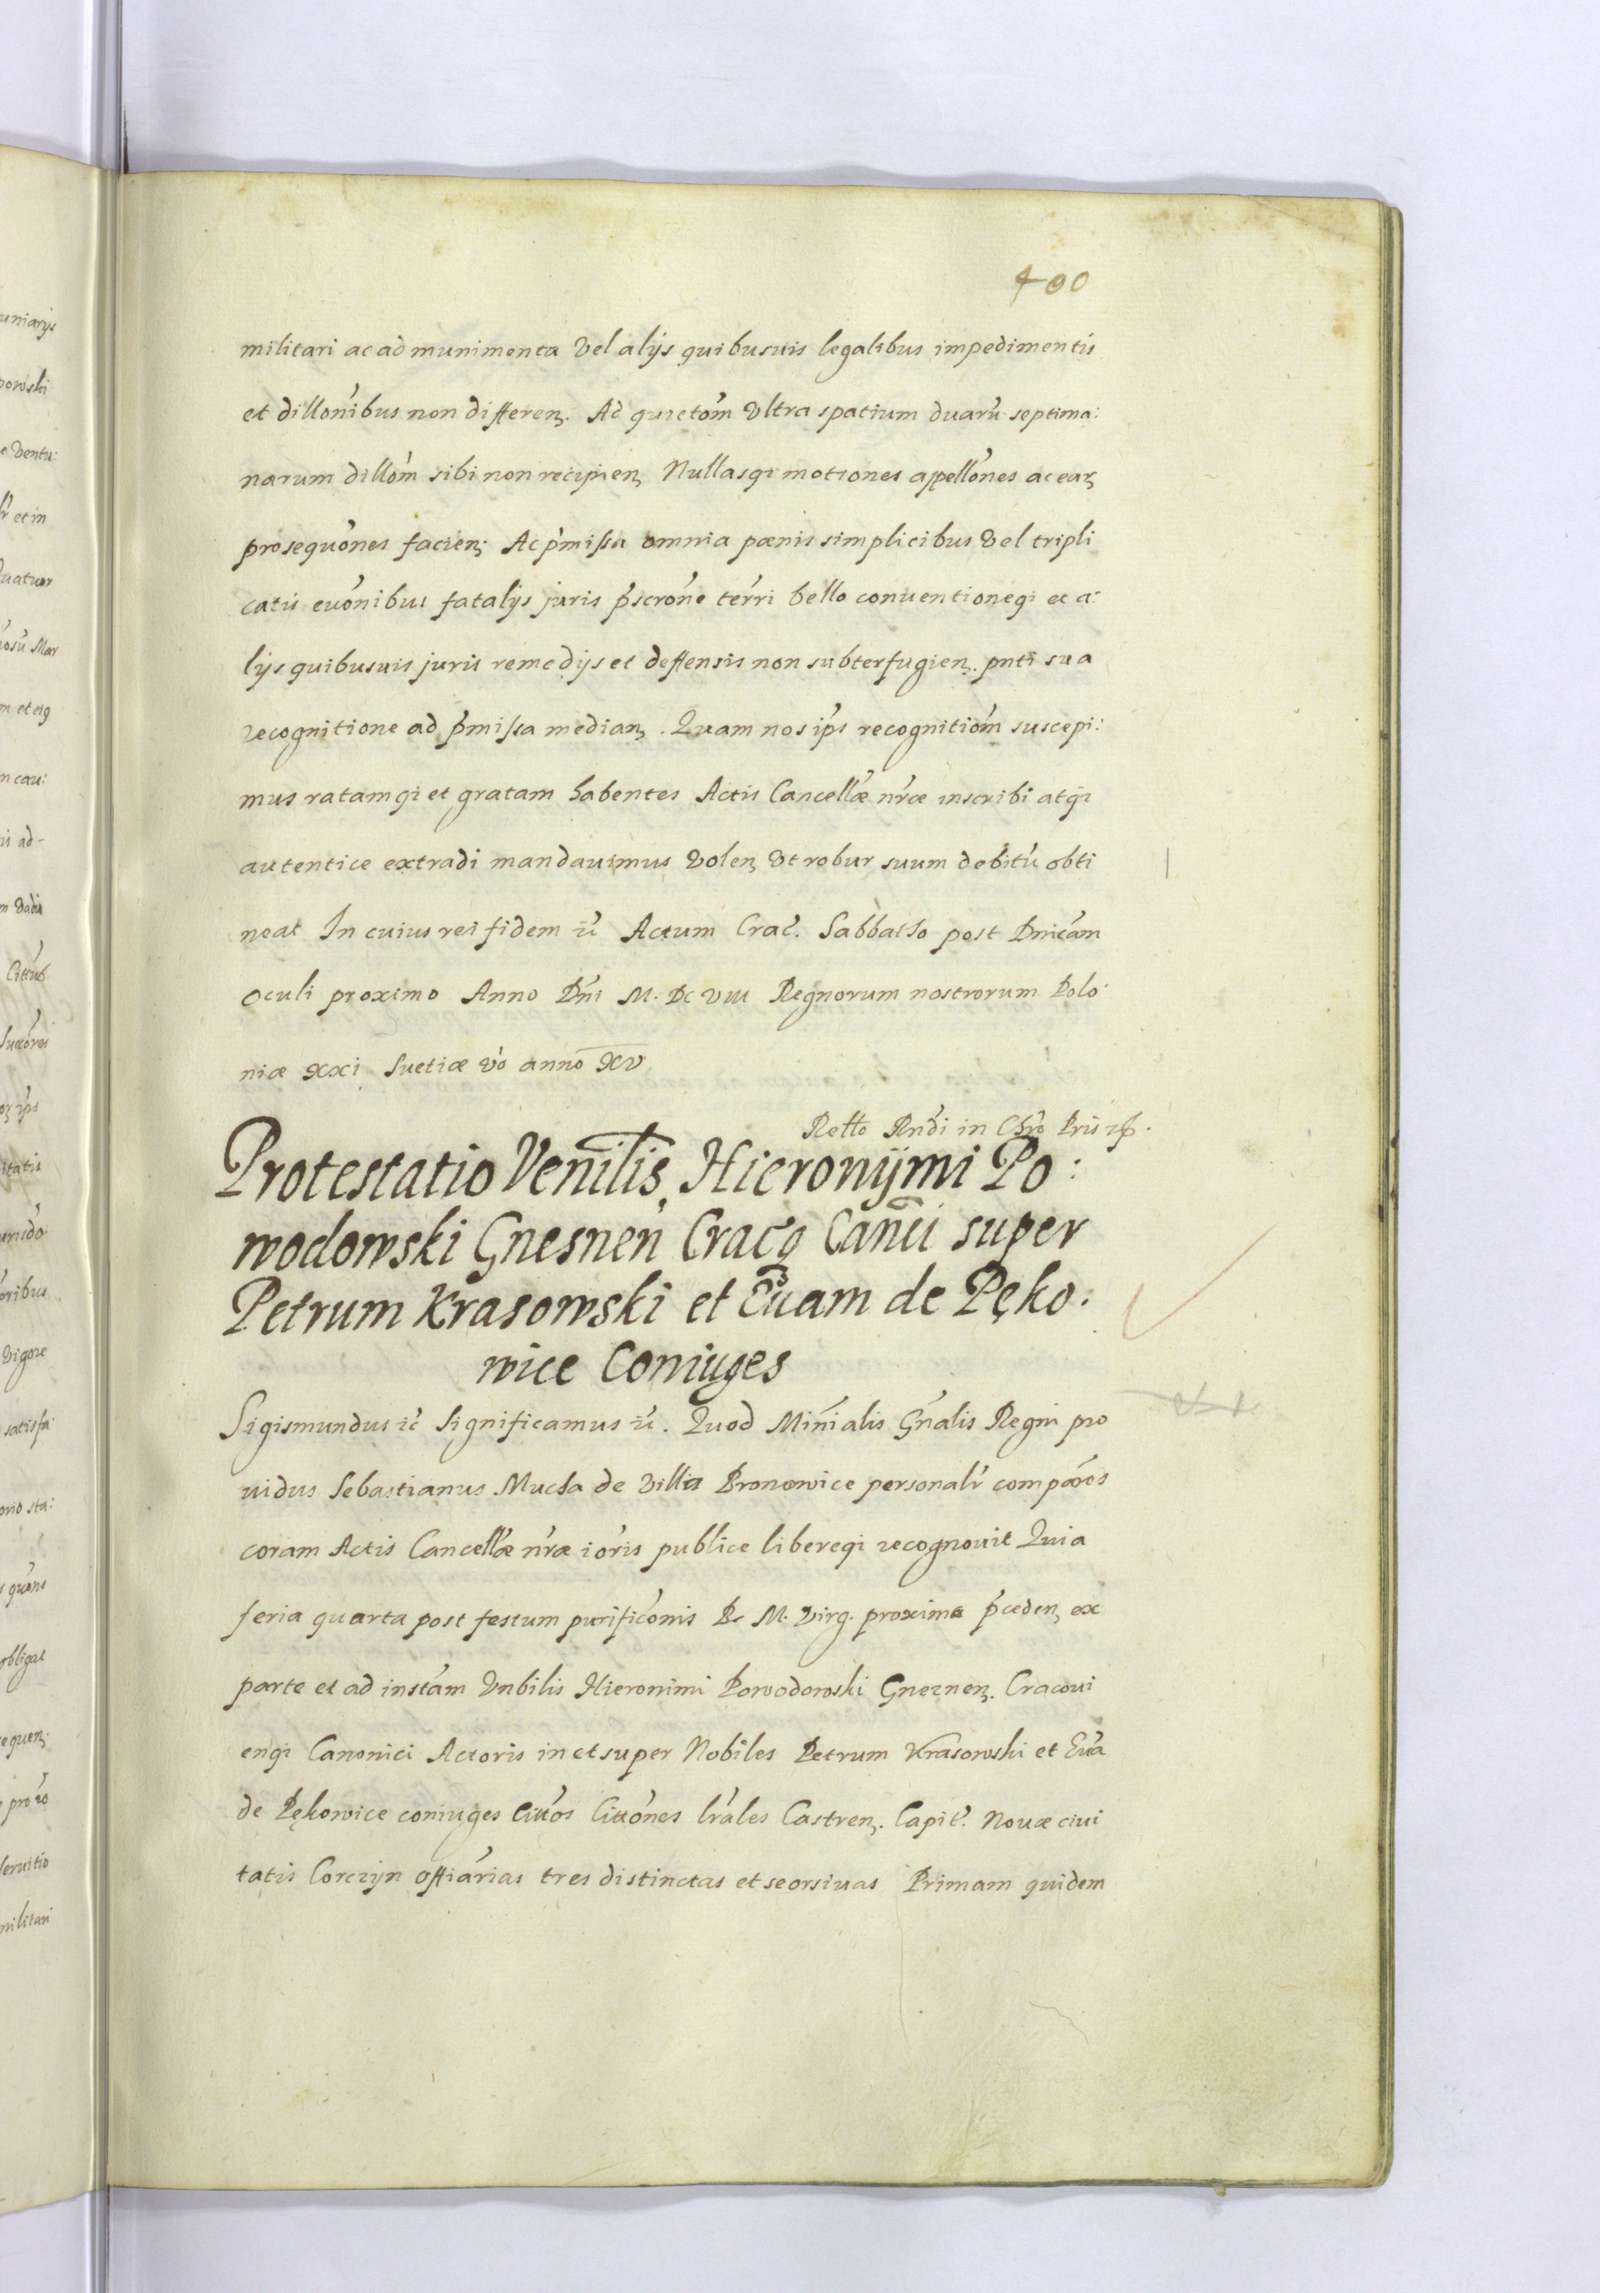 400
militari ac ad munimenta vel alijs quibusuis legalibus impedimentis
et dillo͠nibus non differen͠. Ac quieto͠m vltra spatium duaru͠ septima:
narum dillo͠m sibi non recipien͠ Nullasq3 motiones appello͠nes ac ear͠
prosequo͠nes facien͠. Ac p͠missa omnia pœnis simplicibus vel tripli
catis euo͠nibus fatalijs juris p͠scro͠ne ter͠ri bello conuentioneq3 et a:
lijs quibusuis juris remedijs et deffensis non subterfugien͠. pn͠ti sua
recognitione ad p͠missa median͠. Quam nos ip͠s recognitio͠m suscepi:
mus ratamq3 et gratam habentes Actis Cancell͠æ n͠ræ inscribi atq3
autentice extradi mandauimus volen͠ vt robur suum debitu͠ obti
neat In cuius rei fidem &c͠ Actum Crac͠. Sabbatho post Dnica͠m
Oculi proximo Anno Dn͠i M. DC VIII Regnorum nostrorum Polo:
niæ XXI Suetiæ v͠o anno XV
Rel͠to Rn͠di in Chr͠o Pris
Protestatio Ven͠ilis Hieronymi Po:
wodowski Gnesnen͠ Cracq͠ Can͠ci super
Petrum Krasowski et Euam de Pęko:
wice Coniuges
Sigismundus &c͠ Significamus &c͠. Quod Min͠ialis Gn͠alis Regni pro
uidus Sebastianus Mucha de villa Bronowice personal͠r compa͠res
coram Actis Cancell͠æ n͠ræ io͠ris publice libereq3 recognouit Quia
feria quarta post festum purifico͠nis B. M. Virg. proxime p͠ceden͠ ex
parte et ad insta͠m Vn͠bilis Hieronimi Powodowski Gneznen͠. Cracoui
enq3 Canonici Actoris in et super Nobiles Petrum Krasowski et Eua͠
de Pękowice coniuges Citt͠os Citto͠nes l͠rales Castren͠. Capit͠. Nouæ ciui
tatis Corczyn Offia͠rias tres distinctas et seorsiuas Primam quidem